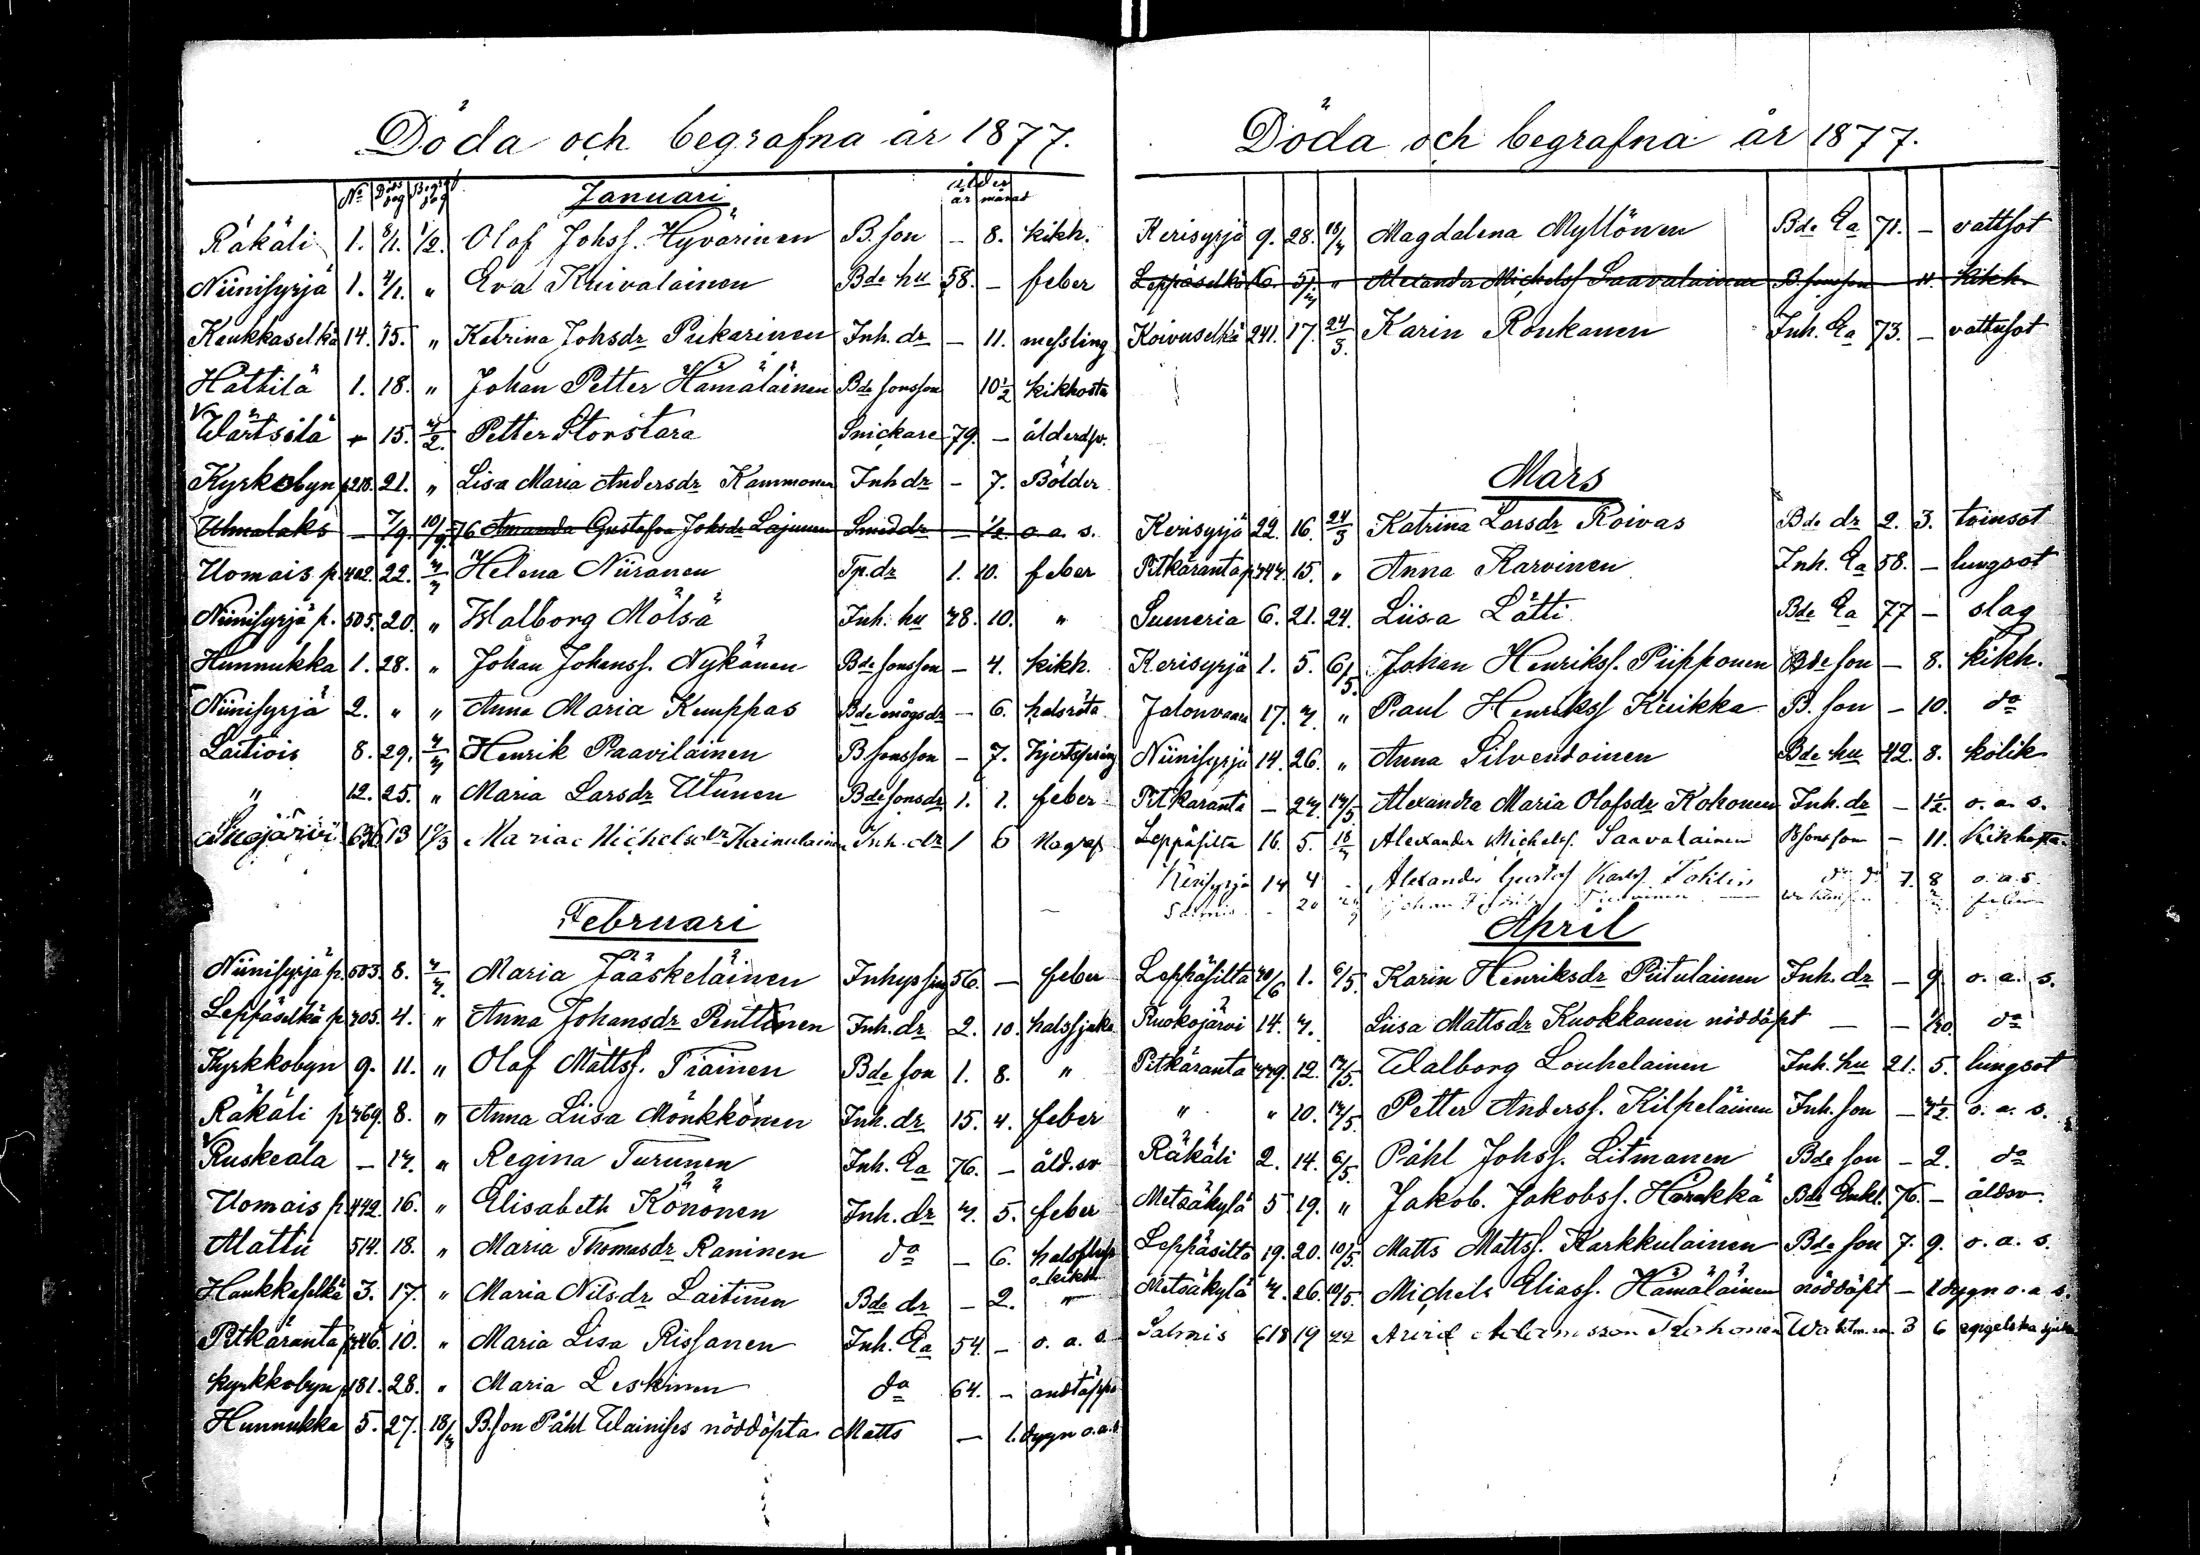 Döda och begrafna år 1877.
No Döds dag Begrafn. dag Januari ålder år månad
Räkäli 1. 8/1. 1/2. Olof Johsſ. Hyvärinen B. son – 8. kikh.
Niinisyrjä 1. 4/1. " Eva Kuivalainen Bde hu 58. – feber
Kaukkaselkä 14. 15. " Katrina Johsdr Pukarinen Inh. dr – 11. messling
Hattilä 1. 18. " Johan Petter Hämäläinen Bde sonson 10½ kikhosta
Wärtsilä 15. 4/2. Petter Storstara Snickare 79. – ålderdsv.
Kyrkobyn 218. 21. " Lisa Maria Andersdr Kammonen Inh dr – 7. Bölder
Uhmalaks – 7/9. 10/9. 76 Amanda Gustafva Johsdr Lajunen Smed dr – ½ o. a. s.
Uomais p. 402. 22. Helena Niiranen Tp. dr 1. 10. feber
Niinisyrjä p. 505. 20. " Walborg Mölsä Inh. hu 48. 10. "
Hunnukka 1. 28. " Johan Johansſ. Nykänen Bde sonson – 4. kikh.
Niinisyrjä 2. " " Anna Maria Kemppas Bde mågsdr – 6. halsröta
Laitiois 8. 29. Henrik Paavilainen B. sonson – 7. hjertspräng
" 12. 25. " Maria Larsdr Utunen Bde sonsdr 1. 1. feber
Suojärvi 636 13 Maria Michelsdr Kainulainen Inh. dr 1 6
Februari
Niinisyrjä p. 503. 8. Maria Jääskeläinen Inhyssing 56. – feber
Leppäselkä p. 405. 4. " Anna Johansdr Penttinen Inh. dr 2. 10. halssjuka
Kyrkkobyn 9. 11. " Olof Mattsſ. Tiainen Bde son 1. 8. "
Räkäli p. 469. 8. " Anna Liisa Mönkkönen Inh. dr 15. 4. feber
Ruskeala – 14. " Regina Turunen Inh. Ea 76. – åld.sv
Uomais p. 442. 16. " Elisabeth Könönen Inh. dr 4. 5. feber
Mattii 514. 18. " Maria Thomasdr Raninen do – 6. o. kikh
Haukkaselkä 3. 17. " Maria Nilsdr Laitinen Bde dr – 2. "
Pitkäranta 446. 10. " Maria Lisa Rissanen Inh. Ea 54. – o. a. s
Kyrkkobyn 181. 28. " Maria Leskinen do 64. – andtäppa
Hunnukka 5. 27. 18/4 B. son Påhl Wainisses nöddöpta Matts – 1. dygn o. a. s
Döda och begrafna år 1877.
Kerisyrjä 9. 28. 18/4 Magdalena Myllönen Bde Ea 71. – vattsot
Leppäselkä 16. 5/4 " Alexander Michelsſ Saavalainen B. sonson 11. kikh.
Koivuselkä 241. 17. 24/3. Karin Ronkanen Inh. Ea 73. – vattusot
Mars
Kerisyrjä 22. 16. 24/3 Katrina Larsdr Koivas Bde dr 2. 3. tvinsot
Pitkäranta p. 444. 15. " Anna Karvinen Inh. Ea 58. – lungsot
Sumeria 6. 21. 24. Liisa Lätti Bde Ea 77 – slag
Kerisyrjä 1. 5. 6/5. Johan Henriksſ. Piipponen Bde son – 8. kikh.
Jalonvaara 17. 4. " Paul Henriksſ Kuikka B. son – 10. do
Niinisyrjä 14. 26. " Anna Silvendoinen Bde hu 42. 8. kolik
Pitkäranta – 24. 14/5. Alexandra Maria Olofsdr Kokonen Inh. dr – 1½ o. a. s.
Leppäsilta 16. 5. Alexander Michelsſ. Saavalainen B sonson – 11. Kikhosta.
Kerisyrjä 14 4 Alexander Gustaf Karlsſ Tahlin 7. 8 o. a. s.
Salmis 20 Johan
April
Leppäsilta 40/6 1. 6/5. Karin Henriksdr Piitulainen Inh. dr – 9 o. a. s.
Ruokojärvi 14. 4. Liisa Mattsdr Kuokkanen nöddöpt – – do
Pitkäranta 449. 12. 14/5. Walborg Louhelainen Inh. hu 21. 5. lungsot
" " 20. 14/5. Petter Andersſ. Kilpeläinen Inh. son – 4½ o. a. s.
Räkäli 2. 14. 6/5. Påhl Johsſ. Litmanen Bde son – 2. do
Metsäkylä 5 19. " Jakob Jakobsſ. Harakka Bde Enkl. 76. – åldsv.
Leppäsilta 19. 20. 10/5. Matts Mattsſ. Karkkulainen Bde son 7. 9. o. a. s.
Metsäkylä 4. 26. 10/5. Michel Eliasſ. Hämäläinen nöddöpt – 1 dygn o. a s.
Salmis 618 19 22 Arvid 3 6